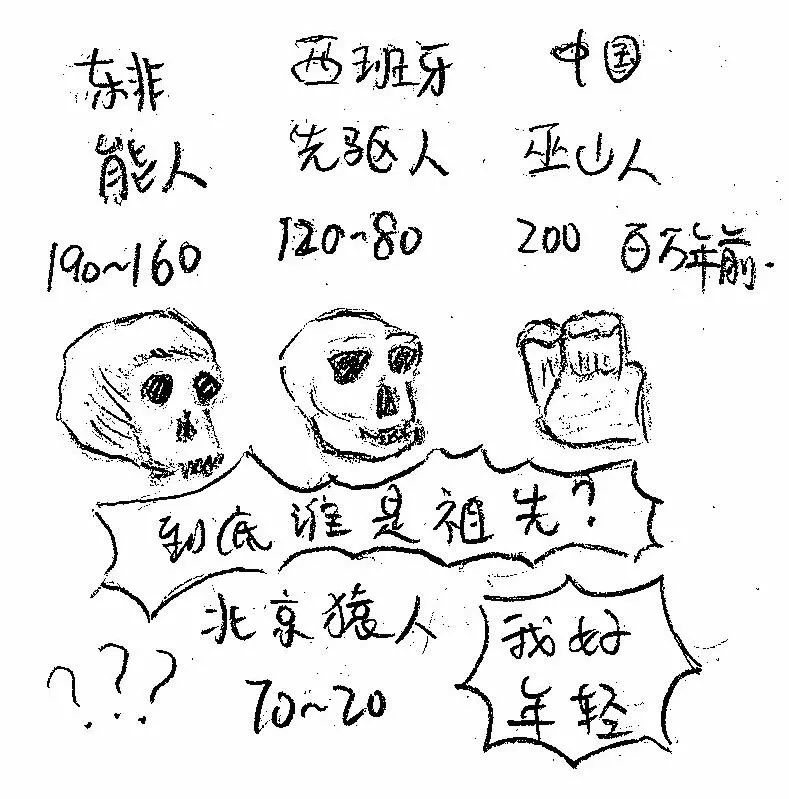 东非 西班牙 中国
能人 先驱人 巫山人
190~160 120~80 200 百万年前.
到底谁是祖先?
北京猿人
??? 70~20
我好
年轻